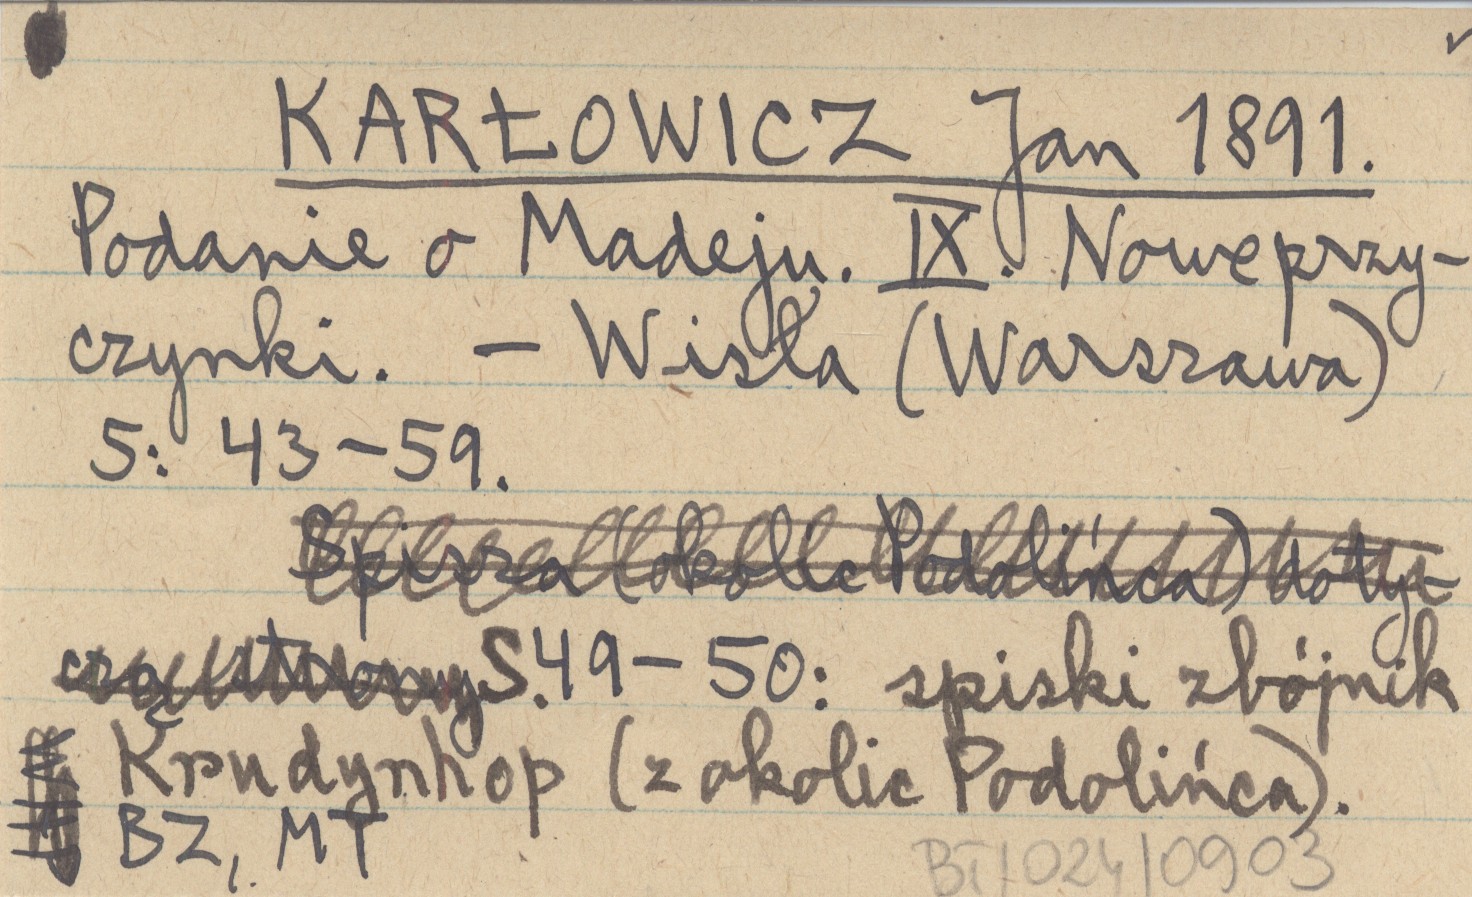 KARŁOWICZ Jan 1891.
Podanie o Madeju. IX. Nowe przy-
czynki. – Wisła (Warszawa)
5: 43–59.
Spisza (okolic Podolińca) doty-
czą strony S. 49–50: spiski zbójnik
Krudynhop (z okolic Podolińca).
BZ, MT
BT/024/0903